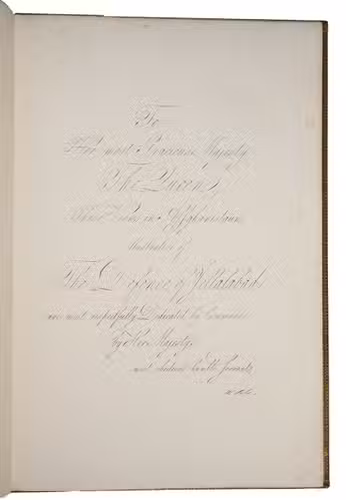 To
Her most Gracious Majesty
The Queen,
These Views in Affghanistaun,
Illustrative of
The Defence of Jellalabad,
are most respectfully Dedicated by Command
by Her Majesty's
most obedient humble Servant,